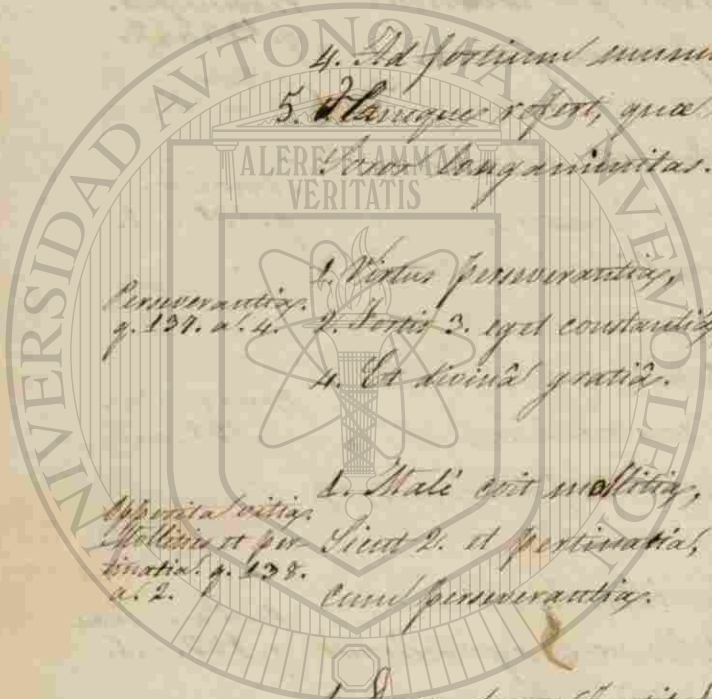 4. Ad fortium
5. refert, quæ
Soror longanimitas.
Perseverantia.
q. 137. a. 4.
1. Virtus perseverantia,
2. Fortis 3. eget constantia
4. Et divinâ gratiâ.
Opposita vitia
Mollities et per-
tinatia. q. 138.
a. 2.
1. Malè coit mollitia,
Sicut 2. et pertinatia,
cum perseverantia.
UNIVERSIDAD AUTONOMA DE NUEVO LEON
ALERE FLAMMAM
VERITATIS